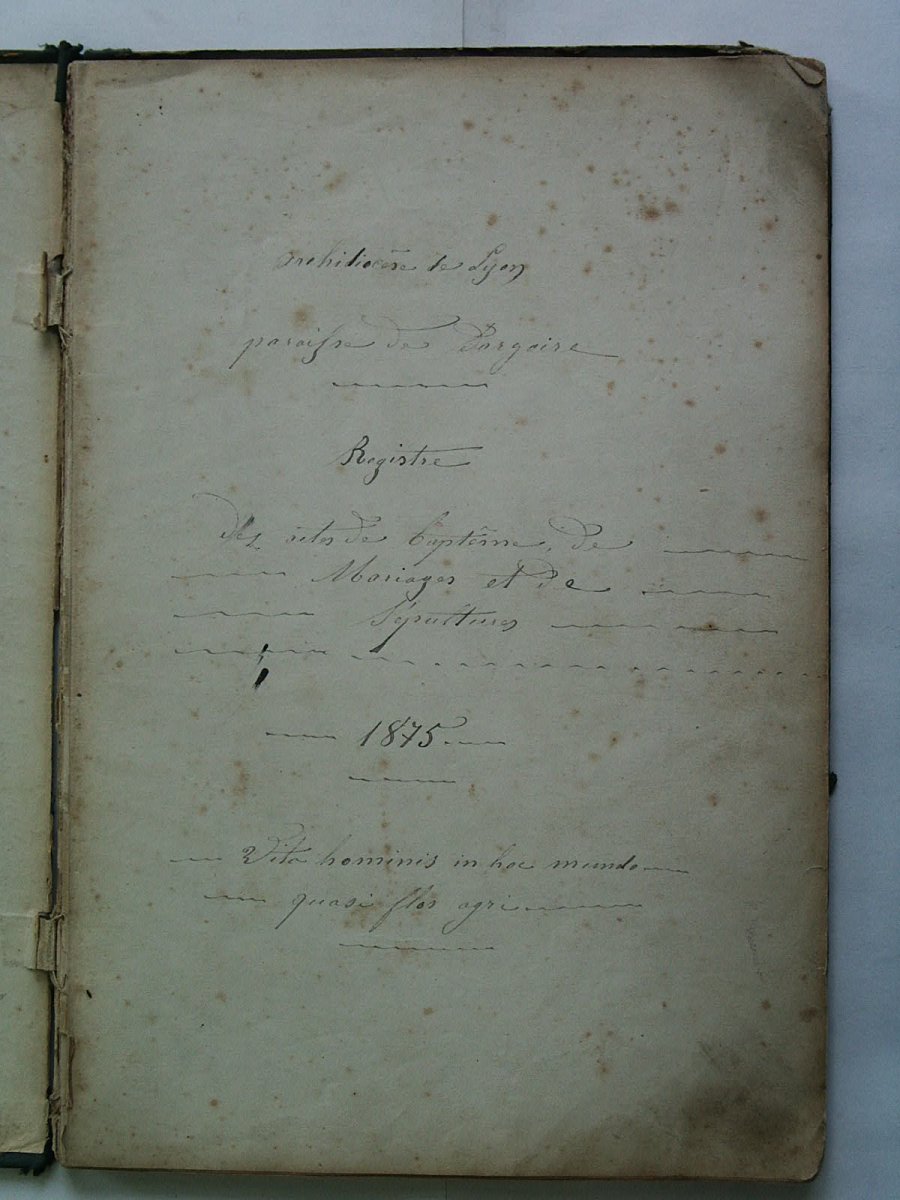 Archidiocèse de Lyon
paroisse de Dargoire
Registre
des actes de baptême, de
Mariages et de
Sépultures
1875
Vita hominis in hoc mundo
quasi flos agri